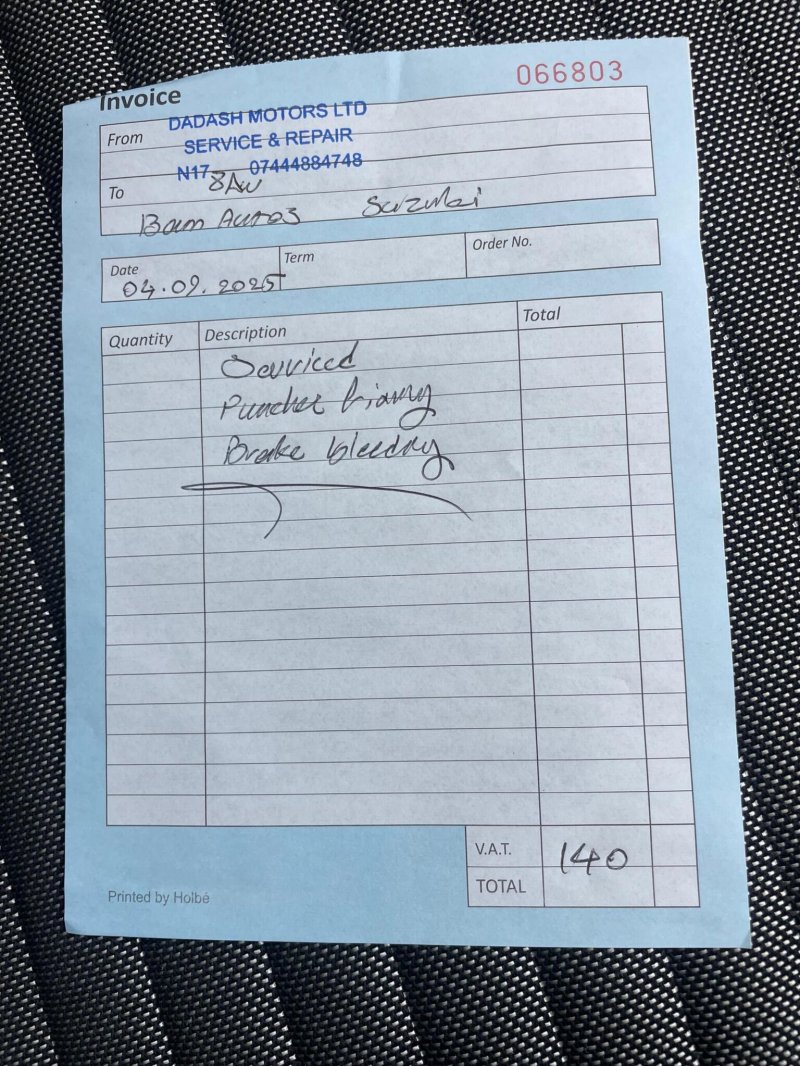 Invoice
066803
From DADASH MOTORS LTD
SERVICE & REPAIR
N17 8AW 07444884748
To
Bam Autos Suzuki
Date Term Order No.
04.09.2025
Quantity Description Total
Serviced
Puncher
Brake bleeding
V.A.T. 140
TOTAL
Printed by Holbé